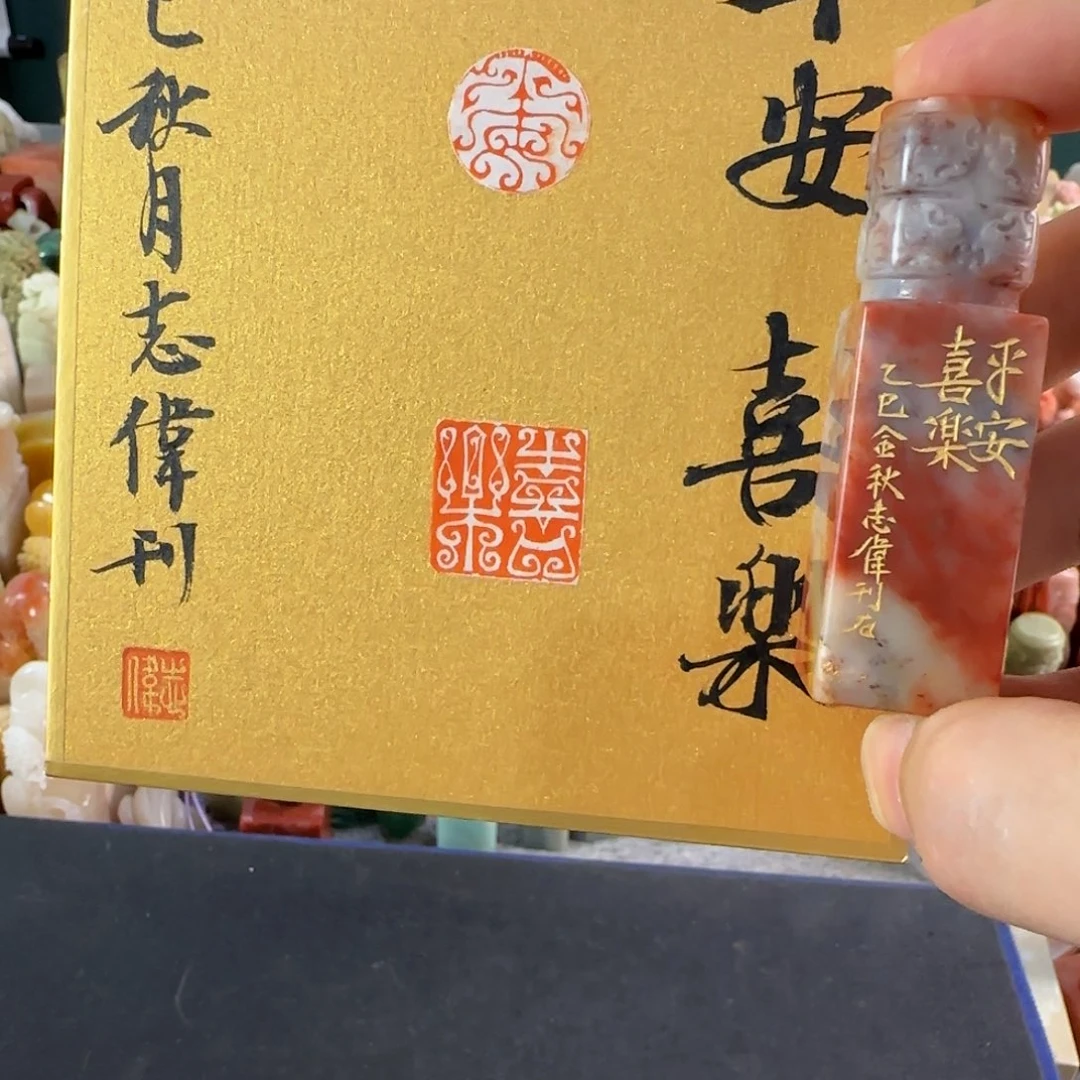 平安
喜樂
乙巳金秋志偉刊石
平安 喜樂
平安
喜樂
巳秋月志偉刊
志偉